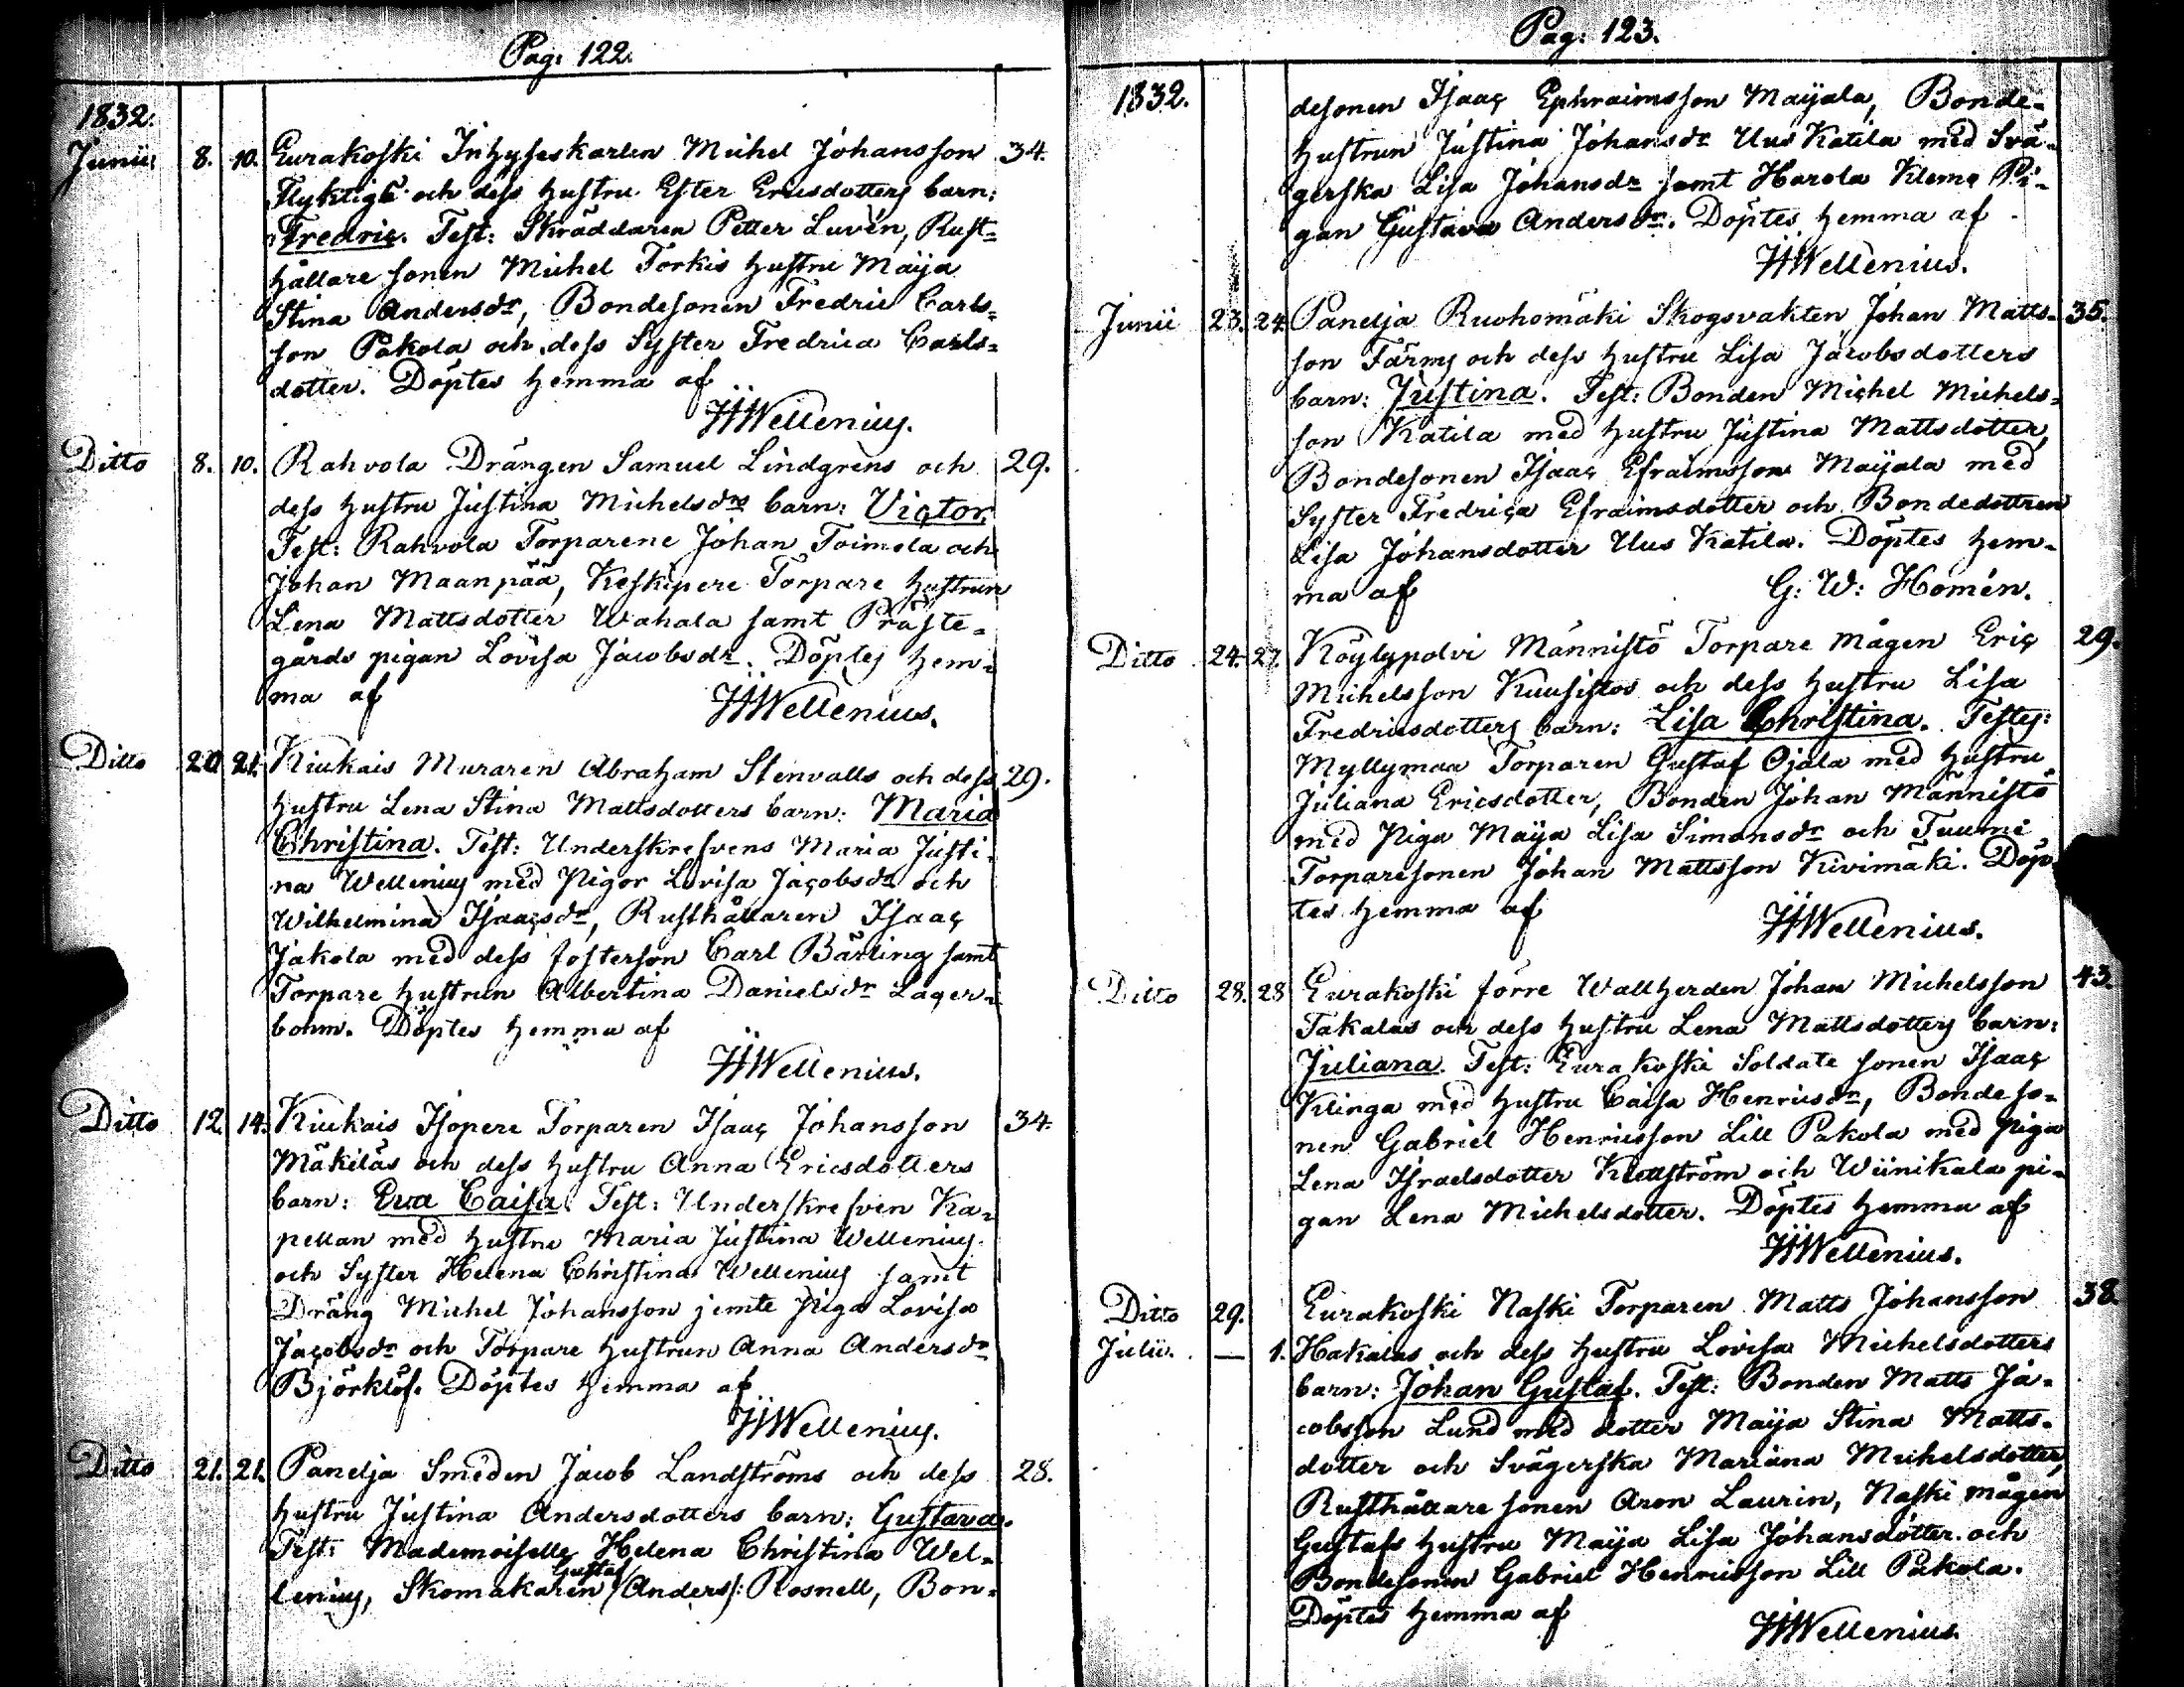 Pag: 122.
1832.
Junii 8. 10. Eurakoski Inhyseskarlen Michel Johansson 34.
Flyktigs och dess hustru Ester Ericsdotters barn:
Fredric. Test: Skräddaren Petter Luvén, Rust-
hållare sonen Michel Torkis hustru Maija
Stina Andersdr, Bondesonen Fredric Carls-
son Pakola och dess Syster Fredrica Carls-
dotter. Döptes hemma af
Wellenius.
Ditto 8. 10. Rahvola Drängen Samuel Lindgrens och 29.
dess hustru Justina Michelsdrs barn: Victor.
Test: Rahvola Torparene Johan Toimola och
Johan Maanpää, Keskipere Torpare hustrun
Lena Mattsdotter Wahala samt Präste-
gårds pigan Lovisa Jacobsdr. Döptes hem-
ma af Wellenius.
Ditto 20 21. Kiukais Muraren Abraham Stenvalls och dess 29.
hustru Lena Stina Mattsdotters barn: Maria
Christina. Test: Underskrefvens Maria Justi-
na Wellenius med Pigor Lovisa Jacobsdr och
Wilhelmina Isaacsdr, Rusthållaren Isaac
Jakola med dess fosterson Carl Bärling samt
Torpare hustrun Albertina Danielsdr Lager-
bohm. Döptes hemma af
Wellenius.
Ditto 12. 14. Kiukais Isopere Torparen Isaac Johansson 34.
Mäkiläs och dess hustru Anna Ericsdotters
barn: Eva Caisa. Test: Underskrefven Ka-
pellan med hustru Maria Justina Wellenius
och Syster Helena Christina Wellenius samt
Dräng Michel Johansson jemte Piga Lovisa
Jacobsdr och Torpare hustrun Anna Andersdr
Björklöf. Döptes hemma af
Wellenius.
Ditto 21. 21. Panelja Smeden Jacob Landströms och dess 28.
hustru Justina Andersdotters barn: Gustava.
Test: Mademoiselle Helena Christina Wel-
Gustaf
lenius, Skomakaren /Anders/: Rosnell, Bon-
Pag: 123.
1832.
desonen Isaac Ephraimsson Maijala, Bonde-
hustrun Justina Johansdr Uus Katila med Svä-
gerska Lisa Johansdr samt Harola Klemo Pi-
gan Gustava Andersdr. Döptes hemma af
Wellenius.
Junii 23. 24. Panelja Ruohomäki Skogsvakten Johan Matts- 35.
son Färms och dess hustru Lisa Jacobsdotters
barn: Justina. Test: Bonden Michel Michels-
son Katila med hustru Justina Mattsdotter,
Bondesonen Isaac Efraimsson Maijala med
Syster Fredrica Efraimsdotter och Bondedottren
Lisa Johansdotter Uus Katila. Döptes hem-
ma af G: W: Homén.
Ditto 24. 27. Köylypolvi Männistö Torpare mågen Eric 29.
Michelsson Kuusistos och dess hustru Lisa
Fredricsdotters barn: Lisa Christina. Testes:
Myllymaa Torparen Gustaf Ojala med hustru
Juliana Ericsdotter, Bonden Johan Männistö
med Piga Maija Lisa Simonsdr och Tuumi
Torparesonen Johan Mattsson Kivimäki. Döp-
tes hemma af
Wellenius.
Ditto 28. 28 Eurakoski förre Wallherden Johan Michelsson 43.
Takalas och dess hustru Lena Mattsdotters barn:
Juliana. Test: Eurakoski Soldate sonen Isaac
Klinga med hustru Caisa Henricsdr, Bondeso-
nen Gabriel Henricsson Lill Pakola med Piga
Lena Israelsdotter Klattström och Wiinikala pi-
gan Lena Michelsdotter. Döptes hemma af
Wellenius.
Ditto 29. Eurakoski Naski Torparen Matts Johansson 38.
Julii. — 1. Hakalas och dess hustru Lovisa Michelsdotters
barn: Johan Gustaf. Test: Bonden Matts Ja-
cobsson Lund med dotter Maija Stina Matts-
dotter och Svägerska Mariana Michelsdotter,
Rusthållare sonen Aron Laurin, Naski mågen
Gustafs hustru Maija Lisa Johansdotter och
Bondesonen Gabriel Henricsson Lill Pakola.
Döptes hemma af
Wellenius.